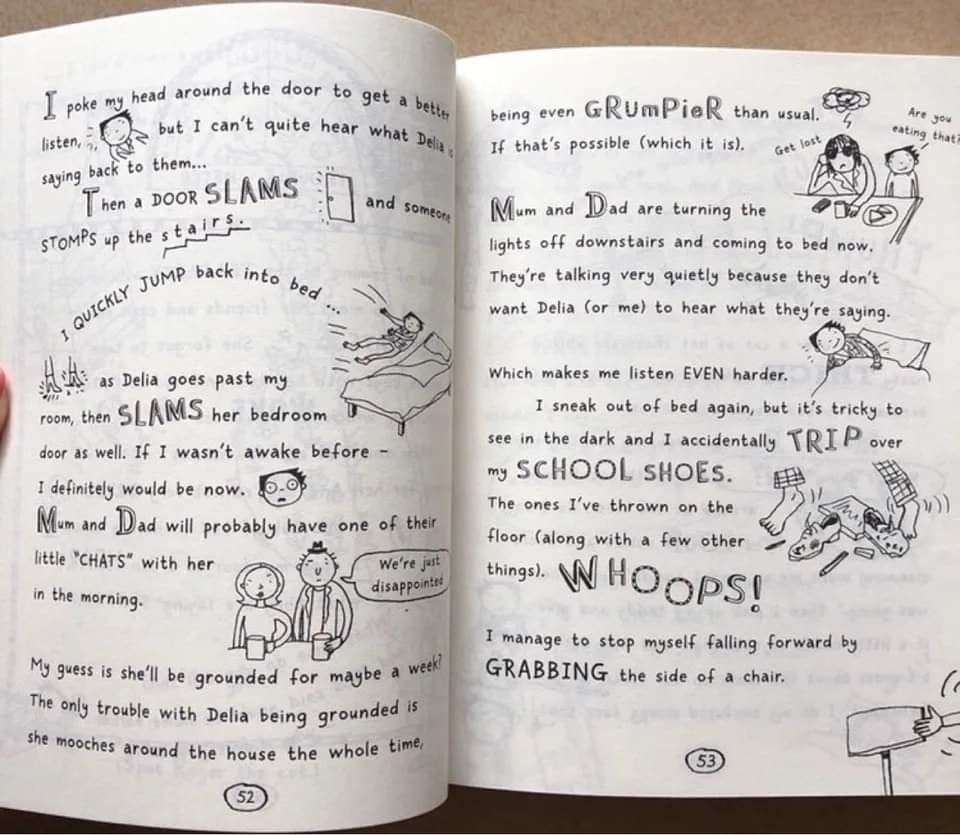 I poke my head around the door to get a better
listen, but I can't quite hear what Delia is
saying back to them...
Then a DOOR SLAMS and someone
STOMPS up the stairs.
I QUICKLY JUMP back into bed...
as Delia goes past my
room, then SLAMS her bedroom
door as well. If I wasn't awake before –
I definitely would be now.
Mum and Dad will probably have one of their
little "CHATS" with her
in the morning.
We're just
disappointed
My guess is she'll be grounded for maybe a week?
The only trouble with Delia being grounded is
she mooches around the house the whole time,
52
being even GRUmPieR than usual.
If that's possible (which it is).
Get lost
Are you
eating that?
Mum and Dad are turning the
lights off downstairs and coming to bed now.
They're talking very quietly because they don't
want Delia (or me) to hear what they're saying.
Which makes me listen EVEN harder.
I sneak out of bed again, but it's tricky to
see in the dark and I accidentally TRIP over
my SCHOOL SHOES.
The ones I've thrown on the
floor (along with a few other
things). WHOOPS!
I manage to stop myself falling forward by
GRABBING the side of a chair.
53